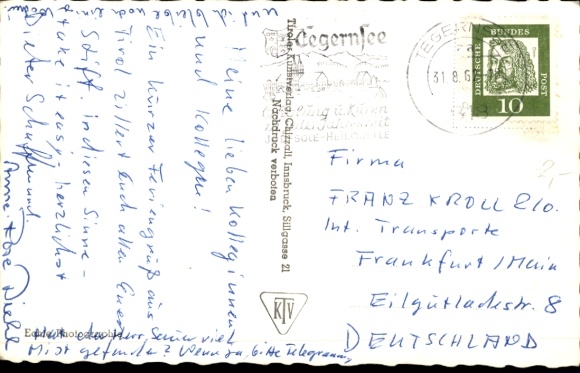 Meine lieben Kolleginnen
und Kollegen!
Ein kurzer Feriengruß aus
Tirol zillert Euch allen Euer
Stift. In diesem Sinne -
take it easy - herzlichst
Dieter
und ich bleibe noch eine
Anne-Rose Diehl
Hat der Herr Senior viel
Mist gefunden? Wenn ja, bitte Telegramm,
Echte Photographie
Tiroler Kunstverlag, Chizzali, Innsbruck, Sillgasse 21
Nachdruck verboten
KTV
Tegernsee
TEGERNS
31.8.6
DEUTSCHE BUNDESPOST
10
Firma
FRANZ KROLL & Co.
Int. Transporte
Frankfurt/Main
Eilgutladestr. 8
DEUTSCHLAND
2,-